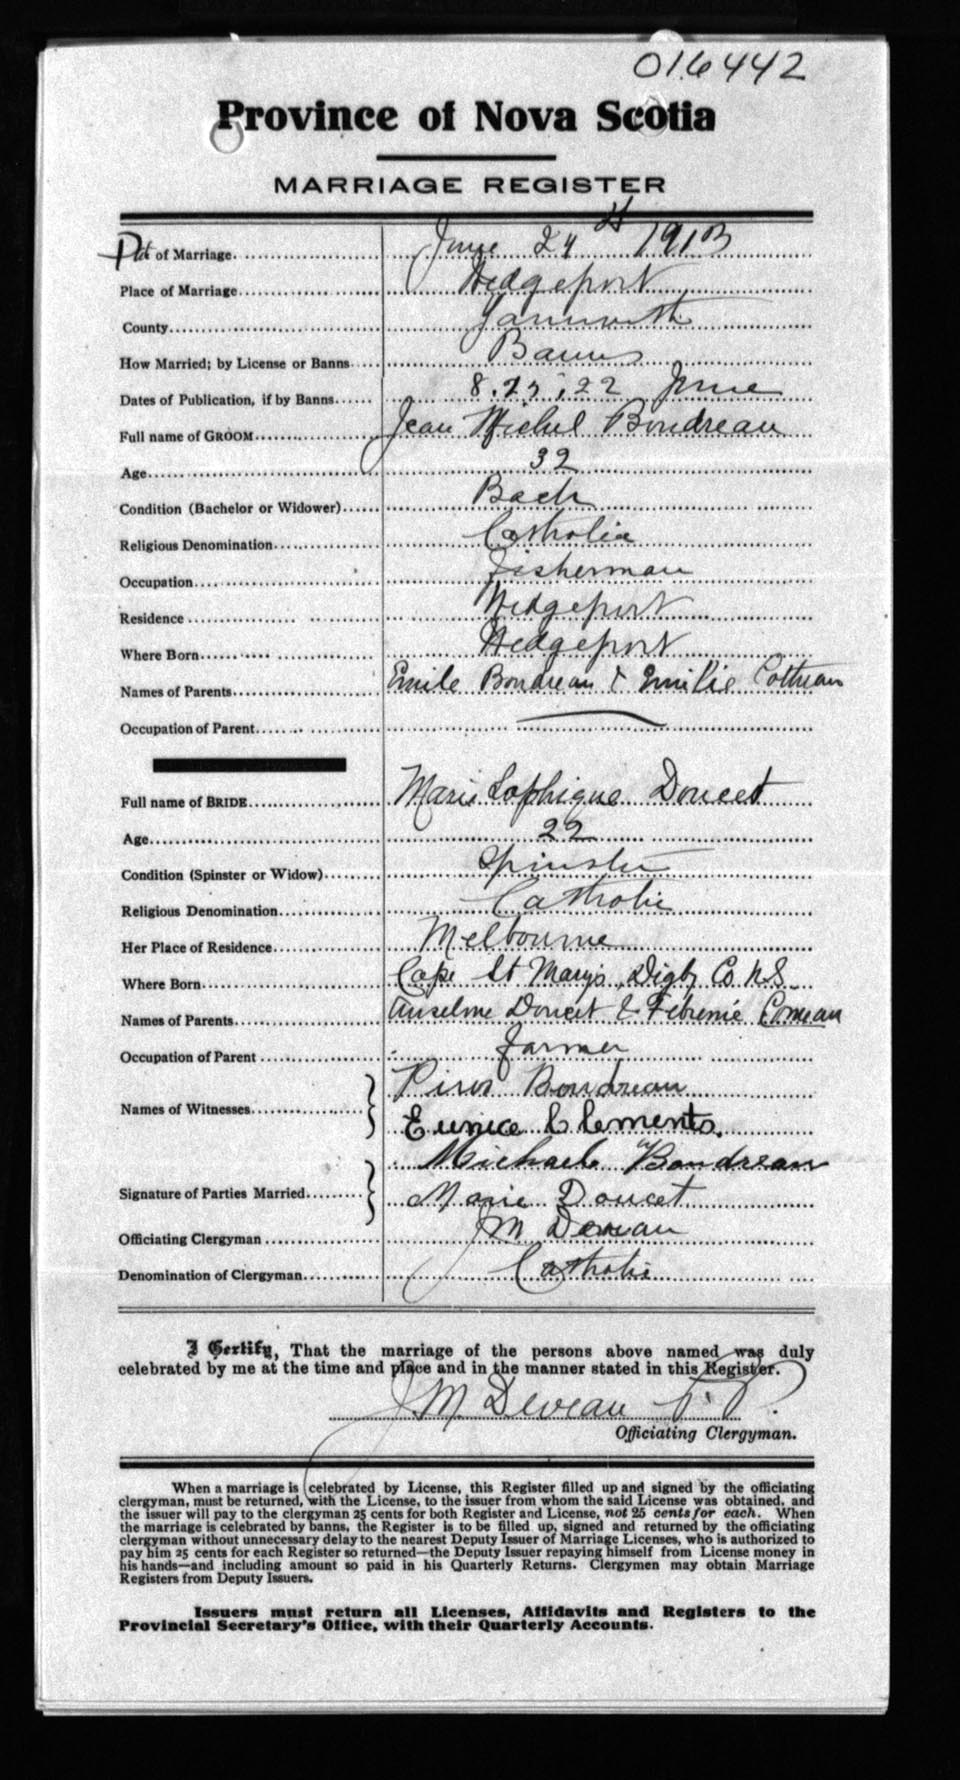 016442
Province of Nova Scotia
MARRIAGE REGISTER
of Marriage June 24th 1913
Place of Marriage Wedgeport
County Yarmouth
How Married; by License or Banns Banns
Dates of Publication, if by Banns 8, 15, 22 June
Full name of GROOM Jean Michel Boudreau
Age 32
Condition (Bachelor or Widower) Bach
Religious Denomination Catholic
Occupation Fisherman
Residence Wedgeport
Where Born Wedgeport
Names of Parents Emile Boudreau & Emilie Cottreau
Occupation of Parent
Full name of BRIDE Marie Sophique Doucet
Age 22
Condition (Spinster or Widow) Spinster
Religious Denomination Catholic
Her Place of Residence Melbourne
Where Born Cape St Marys, Digby Co. N.S.
Names of Parents Anselme Doucet & Febrenie Comeau
Occupation of Parent farmer
Names of Witnesses Boudreau
Eunice Clements.
Signature of Parties Married Michael Boudreau
Marie Doucet
Officiating Clergyman J M Deveau
Denomination of Clergyman Catholic
I Certify, That the marriage of the persons above named was duly
celebrated by me at the time and place and in the manner stated in this Register.
J M Deveau P.P.
Officiating Clergyman.
When a marriage is celebrated by License, this Register filled up and signed by the officiating
clergyman, must be returned, with the License, to the issuer from whom the said License was obtained, and
the issuer will pay to the clergyman 25 cents for both Register and License, not 25 cents for each. When
the marriage is celebrated by banns, the Register is to be filled up, signed and returned by the officiating
clergyman without unnecessary delay to the nearest Deputy Issuer of Marriage Licenses, who is authorized to
pay him 25 cents for each Register so returned—the Deputy Issuer repaying himself from License money in
his hands—and including amount so paid in his Quarterly Returns. Clergymen may obtain Marriage
Registers from Deputy Issuers.
Issuers must return all Licenses, Affidavits and Registers to the
Provincial Secretary's Office, with their Quarterly Accounts.